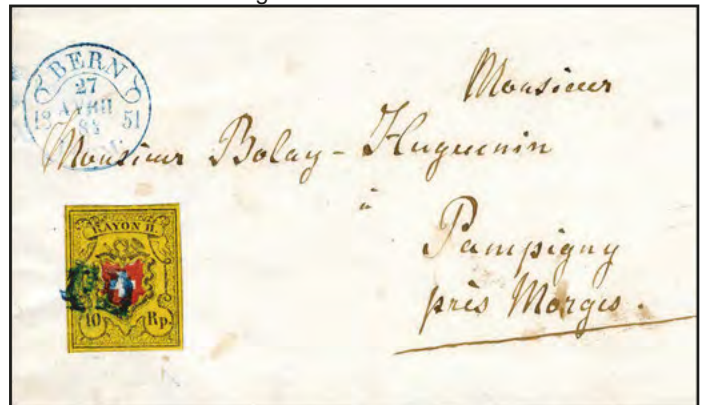 BERN
27
AVRIL
18 51
Monsieur
Monsieur Bolay - Huguenin
à
Pampigny
près Morges.
RAYON II.
PD
10 Rp.